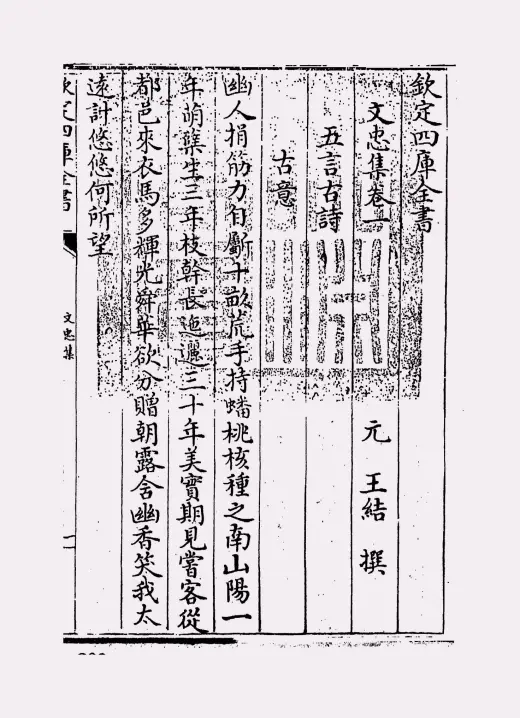 欽定四庫全書
文忠集卷一
元 王結 撰
五言古詩
古意
幽人捐筋力自斸十畝荒手持蟠桃核種之南山陽一
年萌糵生三年枝幹長迤邐三十年美實期見嘗客從
都邑來衣馬多輝光舜華欲分贈朝露含幽香笑我太
遠計悠悠何所望
欽定四庫全書
文忠集
一